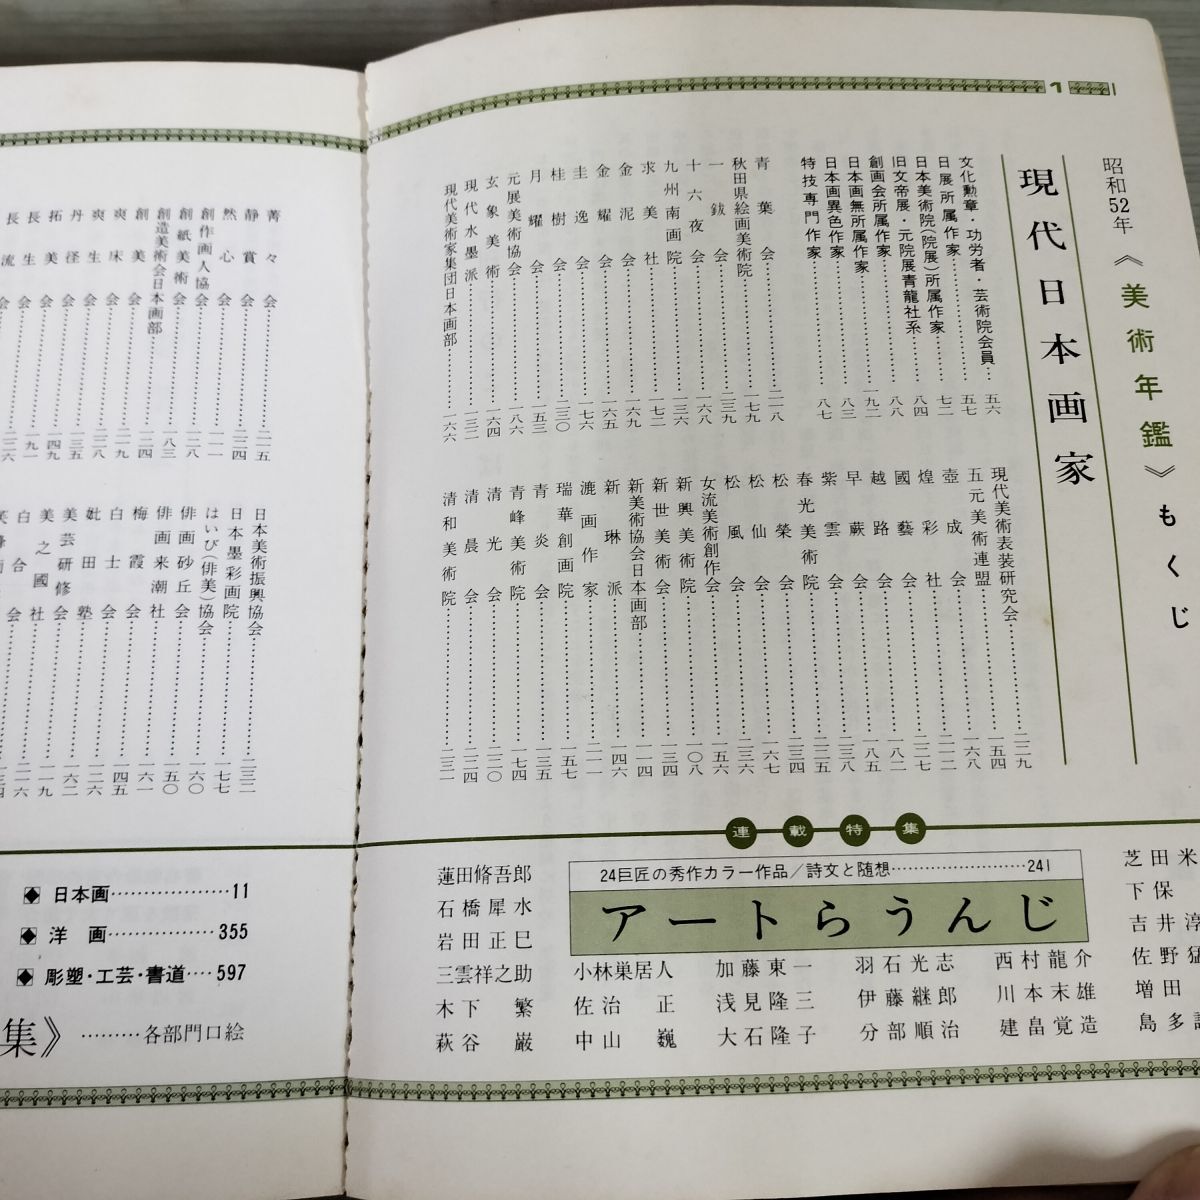 1
昭和52年《美術年鑑》もくじ
現代日本画家
文化勲章・功労者・芸術院会員…五六
日展所属作家……五七
日本美術院(院展)所属作家……七二
旧文帝展・元院展青龍社系……八四
創画会所属作家……八八
日本画無所属作家……一九二
日本画異色作家……八三
特技専門作家……八七
青葉会……二一八
秋田県絵画美術院……一七九
一鈸会……二三九
十六夜会……一六八
九州南画院……一三六
求美社……一七二
金泥会……一六九
金耀会……一六六
圭逸会……一七六
桂樹会……二三〇
月耀会……一五三
元展美術協会……一八六
玄象美術会……一六四
現代水墨派……一三二
現代美術家集団日本画部……一六六
現代美術表装研究会……二二九
五元美術連盟……一五四
壺成会……一六八
煌彩社……二一二
國藝会……二二七
越路会……一八二
早蕨会……一八五
紫雲会……二三八
春光美術院……二二五
松榮会……二三四
松仙会……一六七
松風会……二三六
女流美術創作会……一五六
新興美術院……一〇八
新世美術会……一三四
新美術協会日本画部……一一四
新琳派……一四六
漉画作家……二一一
瑞華創画会……一五七
青炎会……二三五
青峰美術院……一七四
清光会……二二〇
清晨会……二二四
清和美術院……一三一
菁々会……二一五
静賞会……二二四
然心会……二一一
創作画人協会……一二八
創紙美術会……一八三
創造美術会日本画部
創美会……二二四
爽床会……二二九
爽生会……二三八
丹径会……二三五
拓美会……一四九
長生会……一九一
長流会……二三六
日本美術振興協会……二三二
日本墨彩画院……一七七
はいび(俳美)協会……一六〇
俳画砂丘会……一五〇
俳画来潮社……一六一
梅霞会……一四五
白士会……二二六
妣田塾……二二六
美芸研修会……一六二
美之國社……二一九
白合会……二二六
連載特集
24巨匠の秀作カラー作品／詩文と随想……241
アートらうんじ
蓮田脩吾郎
石橋犀水
岩田正巳
三雲祥之助 小林巣居人 加藤東一 羽石光志 西村龍介
木下繁 佐治正 浅見隆三 伊藤継郎 川本末雄
萩谷巌 中山巍 大石隆子 分部順治 建畠覚造
芝田米
下保
吉井淳
佐野猛
増田
島多
◆日本画……11
◆洋画……355
◆彫塑・工芸・書道……597
集》………各部門口絵